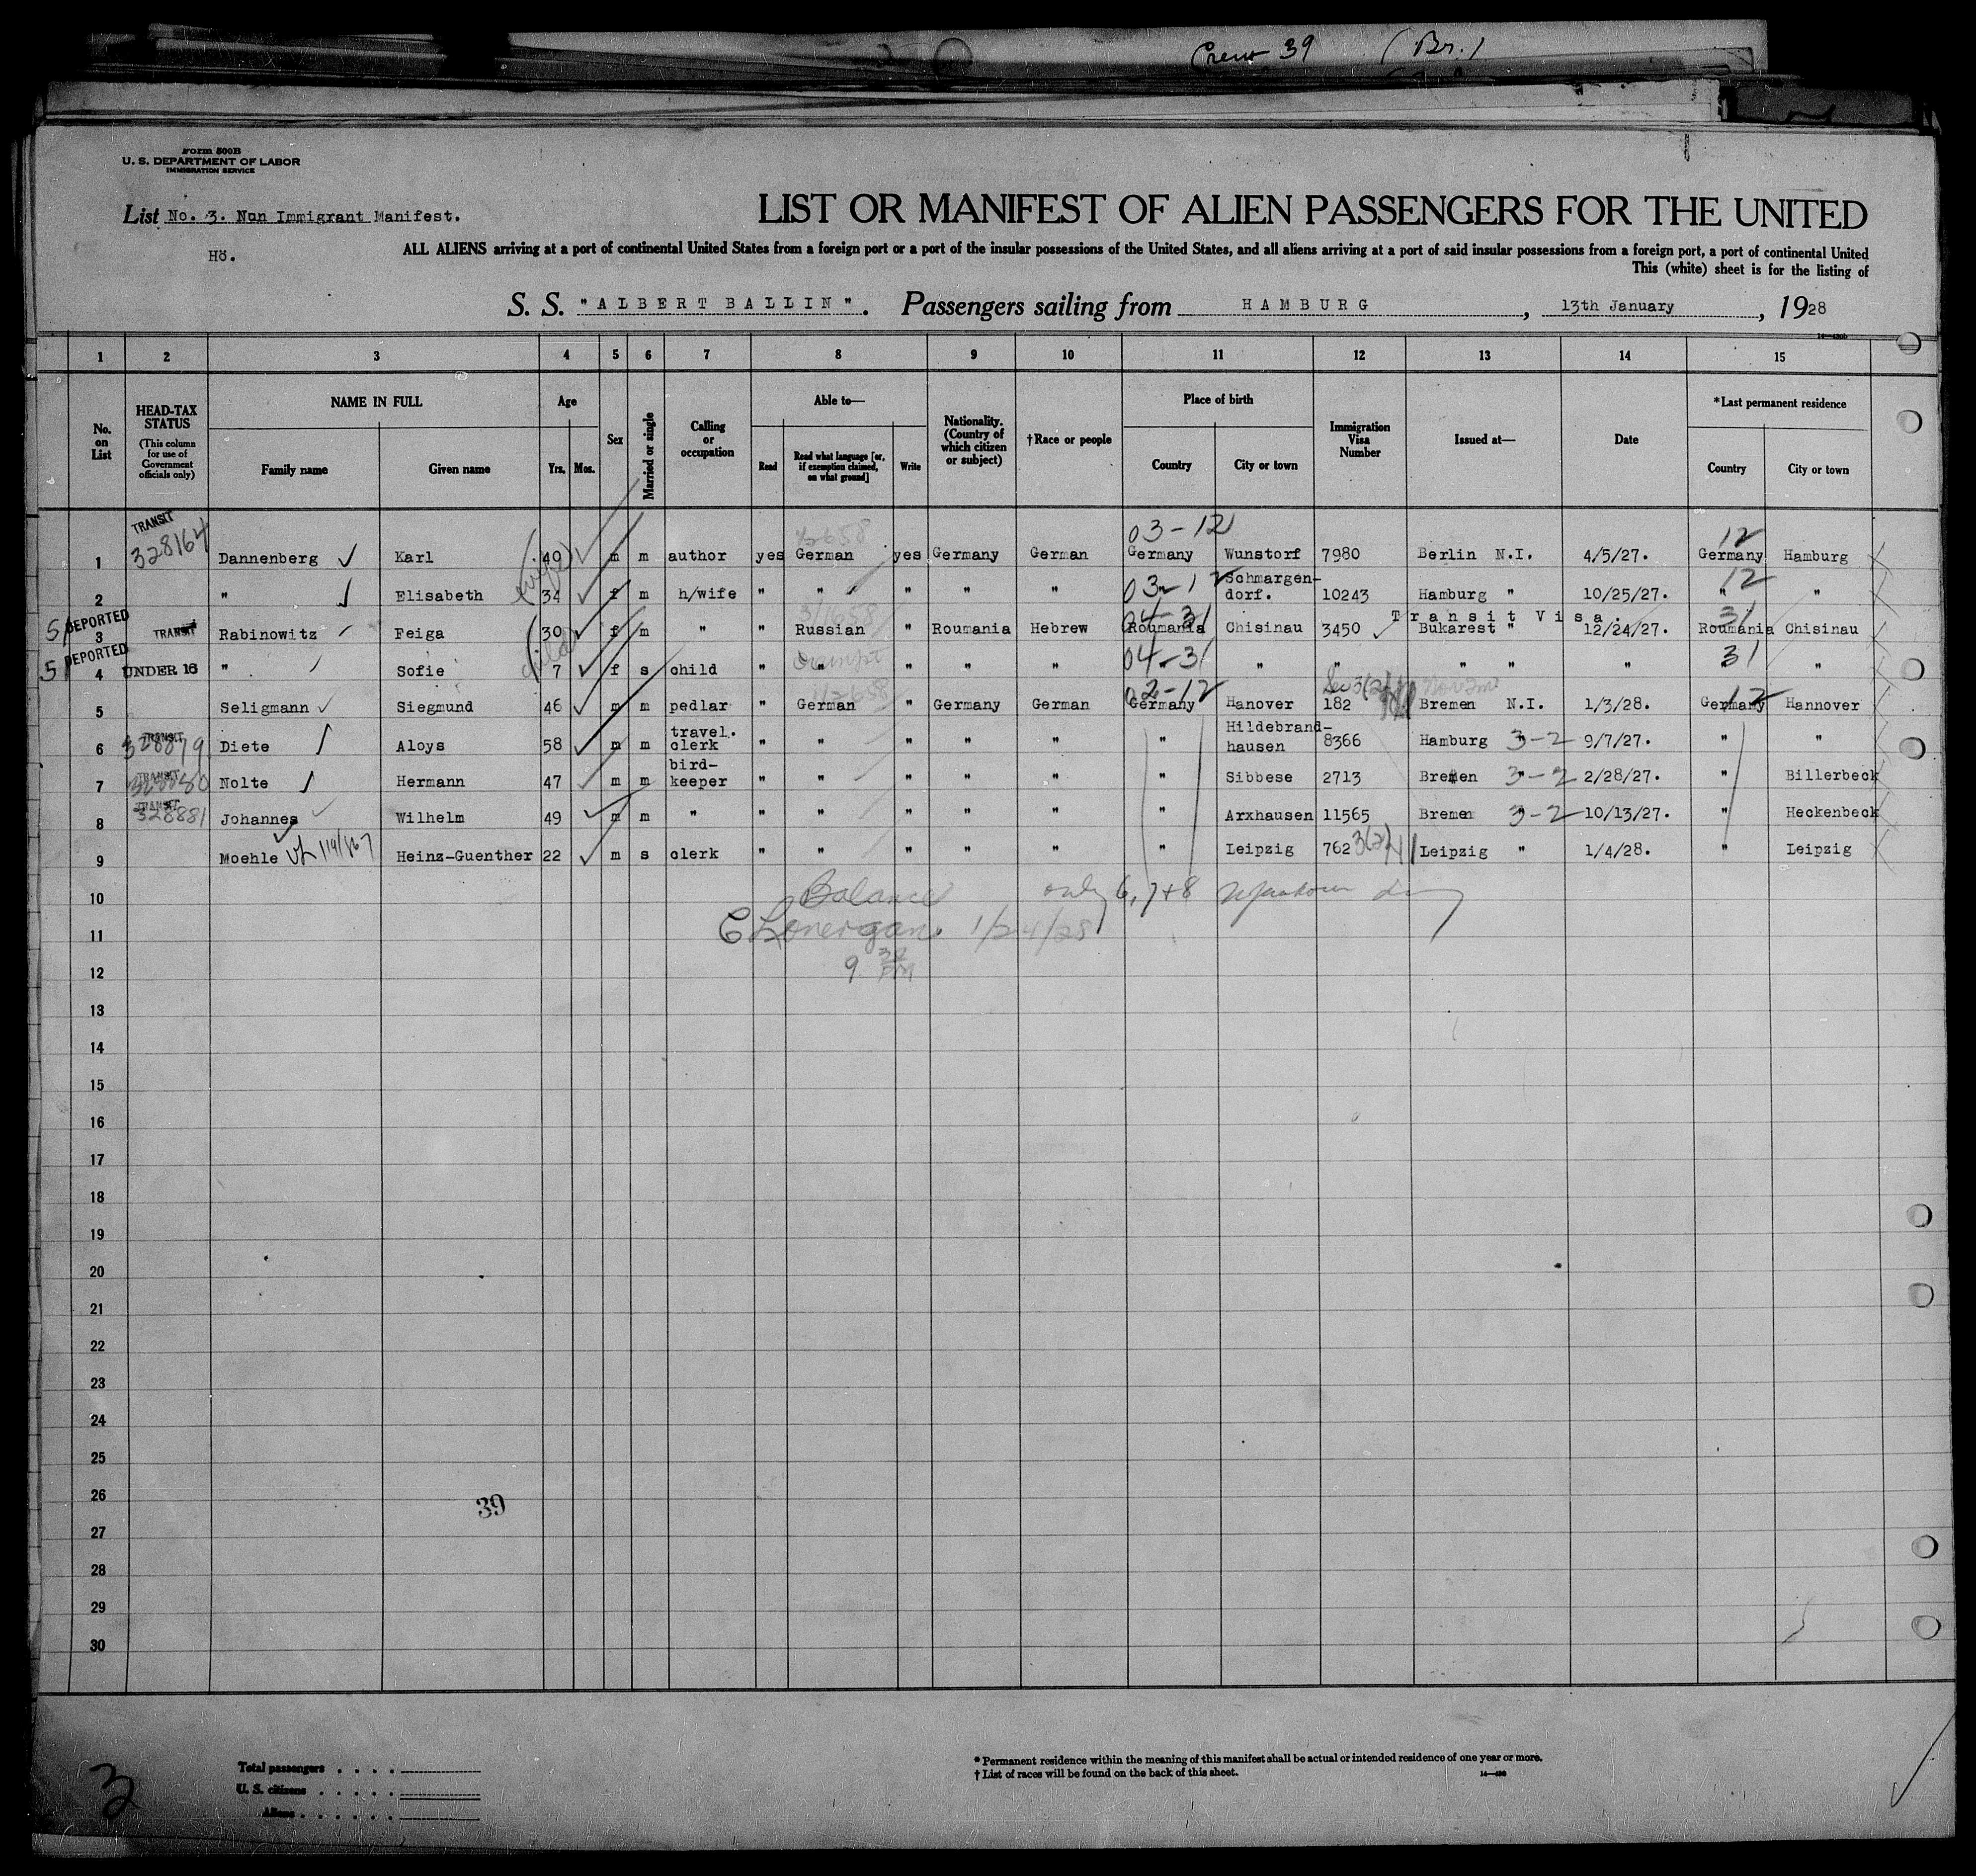 Crew 39 (Br.)
Form 500B
U. S. DEPARTMENT OF LABOR
IMMIGRATION SERVICE
List No. 3. Non Immigrant Manifest.
Hö.
LIST OR MANIFEST OF ALIEN PASSENGERS FOR THE UNITED
ALL ALIENS arriving at a port of continental United States from a foreign port or a port of the insular possessions of the United States, and all aliens arriving at a port of said insular possessions from a foreign port, a port of continental United
This (white) sheet is for the listing of
S. S. "ALBERT BALLIN". Passengers sailing from HAMBURG, 13th January, 1928
1 2 3 4 5 6 7 8 9 10 11 12 13 14 15
No. on List
HEAD-TAX STATUS (This column for use of Government officials only)
NAME IN FULL Family name Given name
Age Yrs. Mos.
Sex
Married or single
Calling or occupation
Able to— Read Read what language [or, if exemption claimed, on what ground] Write
Nationality. (Country of which citizen or subject)
†Race or people
Place of birth Country City or town
Immigration Visa Number
Issued at—
Date
*Last permanent residence Country City or town
TRANSIT 03-12 12
1 328164 Dannenberg Karl 49 m m author yes German yes Germany German Germany Wunstorf 7980 Berlin N.I. 4/5/27. Germany Hamburg
2 " Elisabeth wife 34 f m h/wife " " " " " 03-12 Schmargen-dorf. 10243 Hamburg " 10/25/27. 12 " "
Transit Visa.
5 DEPORTED 3 TRANSIT Rabinowitz Feiga 30 f m " " Russian " Roumania Hebrew 04-31 Roumania Chisinau 3450 Bukarest " 12/24/27. 31 Roumania Chisinau
5 DEPORTED 4 UNDER 16 " Sofie child 7 f s child " " " " " 04-31 " " " " " 31 "
5 Seligmann Siegmund 46 m m pedlar " German " Germany German 02-12 Germany Hanover 182 Bremen N.I. 1/3/28. 12 Germany Hannover
6 TRANSIT 328879 Diete Aloys 58 m m travel. clerk " " " " " " Hildebrand-hausen 8366 Hamburg 3-2 9/7/27. " "
7 TRANSIT Nolte Hermann 47 m m bird-keeper " " " " " " Sibbese 2713 Bremen 3-2 2/28/27. " Billerbeck
8 TRANSIT 328881 Johannes Wilhelm 49 m m " " " " " " " Arxhausen 11565 Bremen 3-2 10/13/27. " Heckenbeck
9 Moehle Heinz-Guenther 22 m s clerk " " " " " " Leipzig 762 3(2) Leipzig " 1/4/28. " Leipzig
10 Balance only 6, 7+8
11 C Lonergan 1/24/28
12 9
13
14
15
16
17
18
19
20
21
22
23
24
25
26
39
27
28
29
30
Total passengers
U. S. citizens
Aliens
* Permanent residence within the meaning of this manifest shall be actual or intended residence of one year or more.
† List of races will be found on the back of this sheet.
3